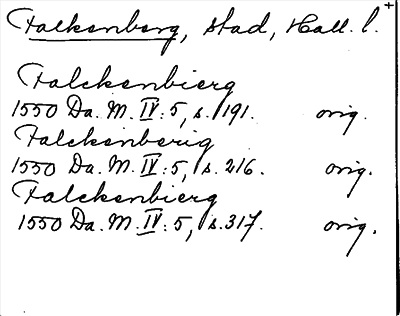 Falkenberg, stad, Hall. l.
Falckenbierg
1550 Da. M. IV: 5, s. 191. orig.
Falckenberig
1550 Da. M. IV: 5, s. 216. orig.
Falckenbierg
1550 Da. M. IV: 5, s. 317. orig.